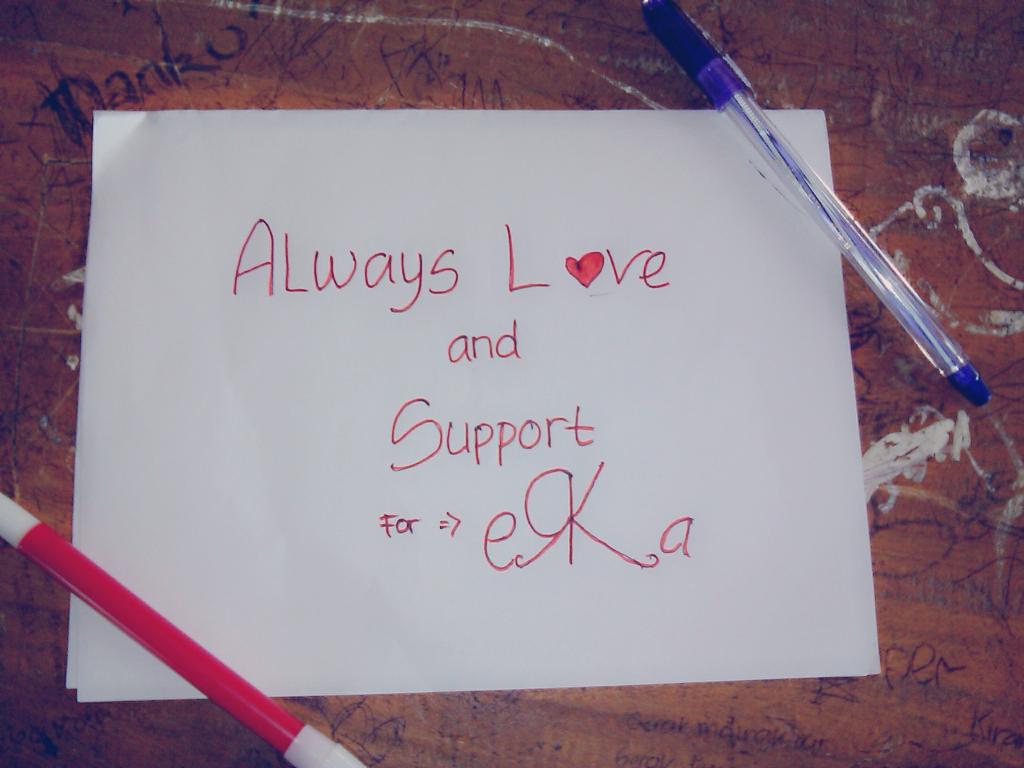 ALways L❤ve
and
Support
For => eKa